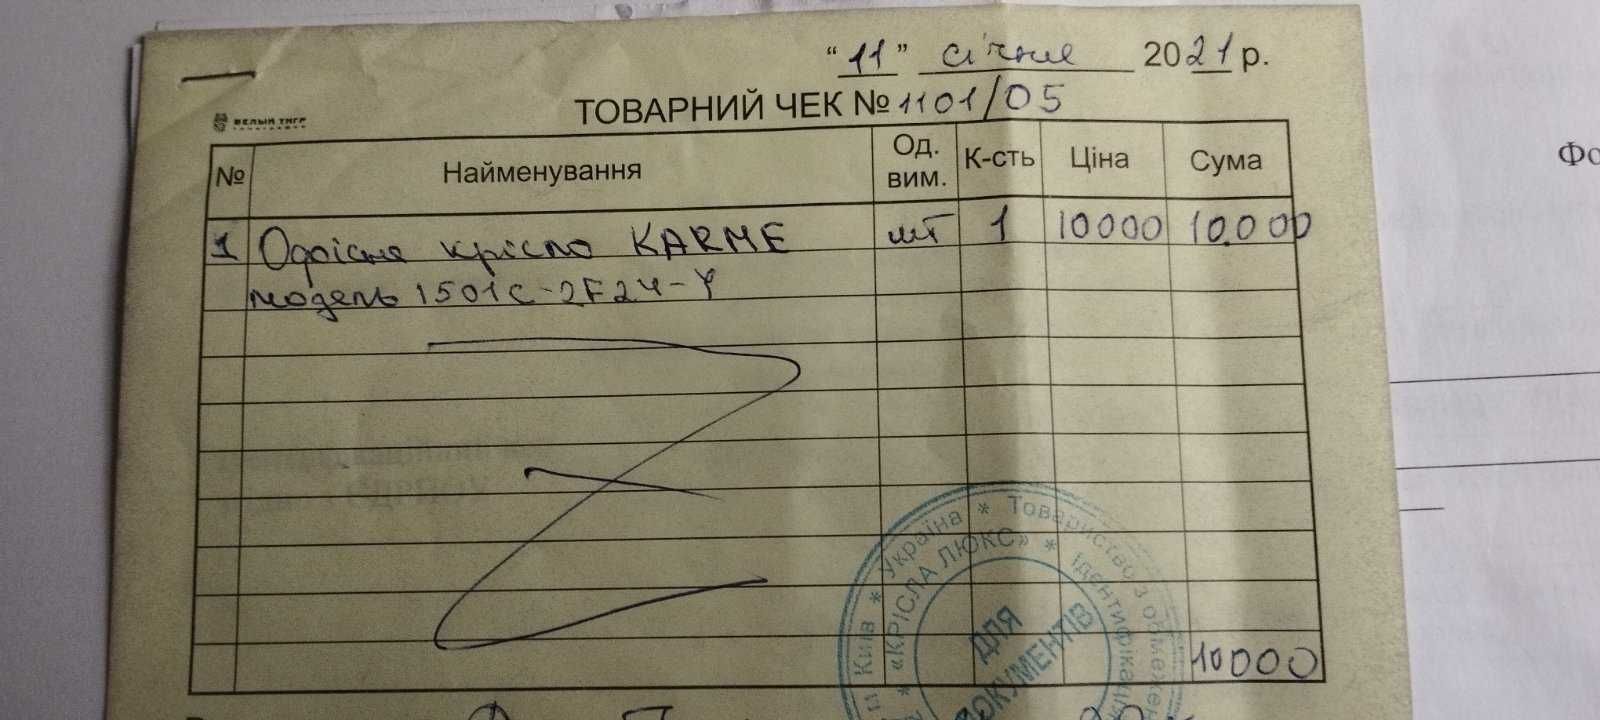 "11" січня 2021 р.
ТОВАРНИЙ ЧЕК № 1101/05
БЕЛЫЙ ТИГР
№ Найменування Од. вим. К-сть Ціна Сума
1 Офісне крісло KARME шт 1 10000 10.000
модель 1501C-2F24-Y
10000
Київ * Україна * Товариство з обмежен
* «КРІСЛА ЛЮКС» * Ідентифікаці
ДЛЯ
ДОКУМЕНТІВ
Фо